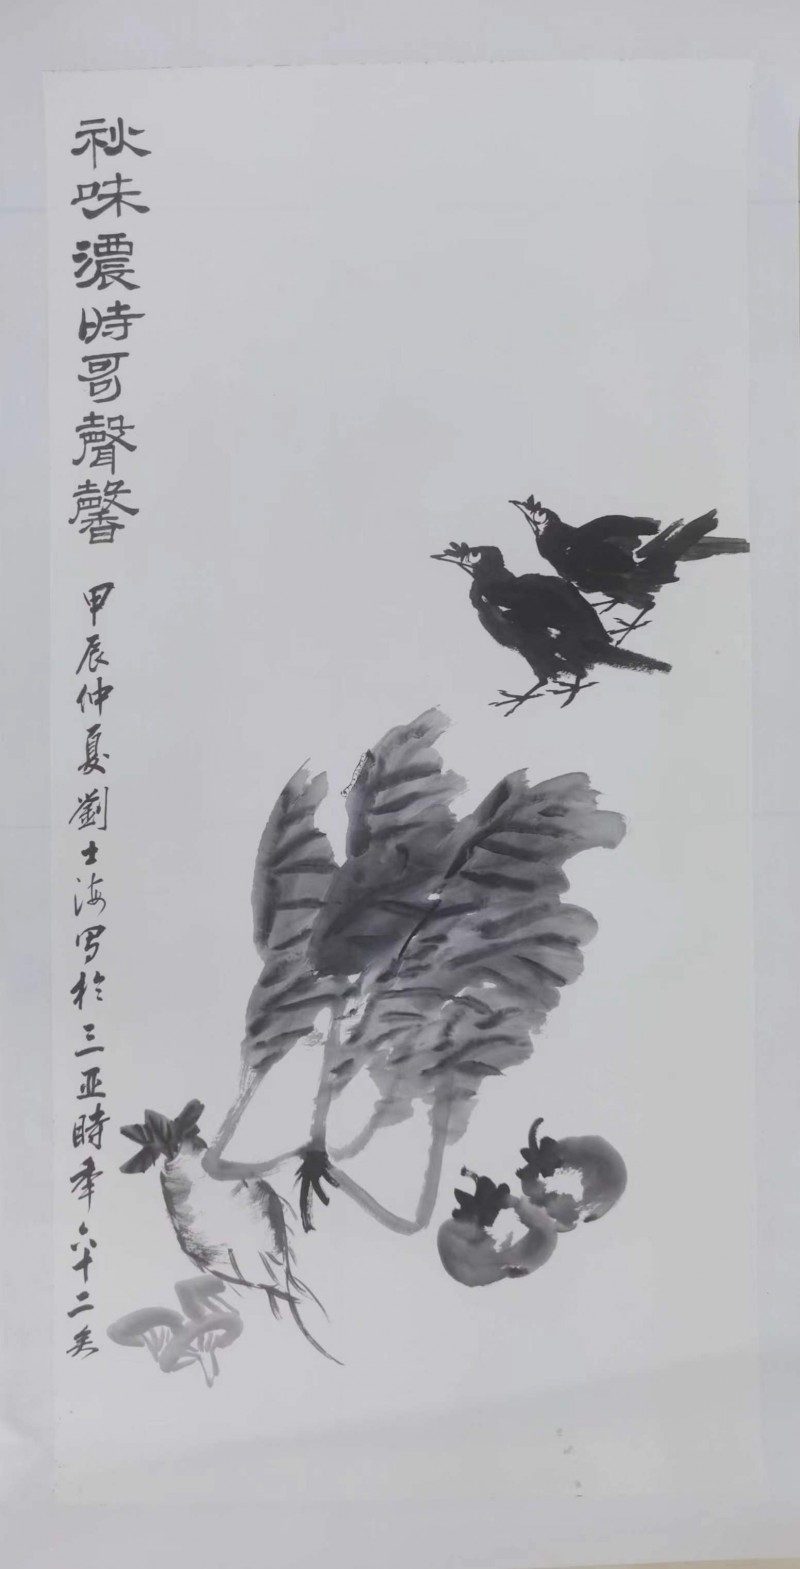 秋味濃時哥聲馨
甲辰仲夏劉士海写於三亚時年六十二矣